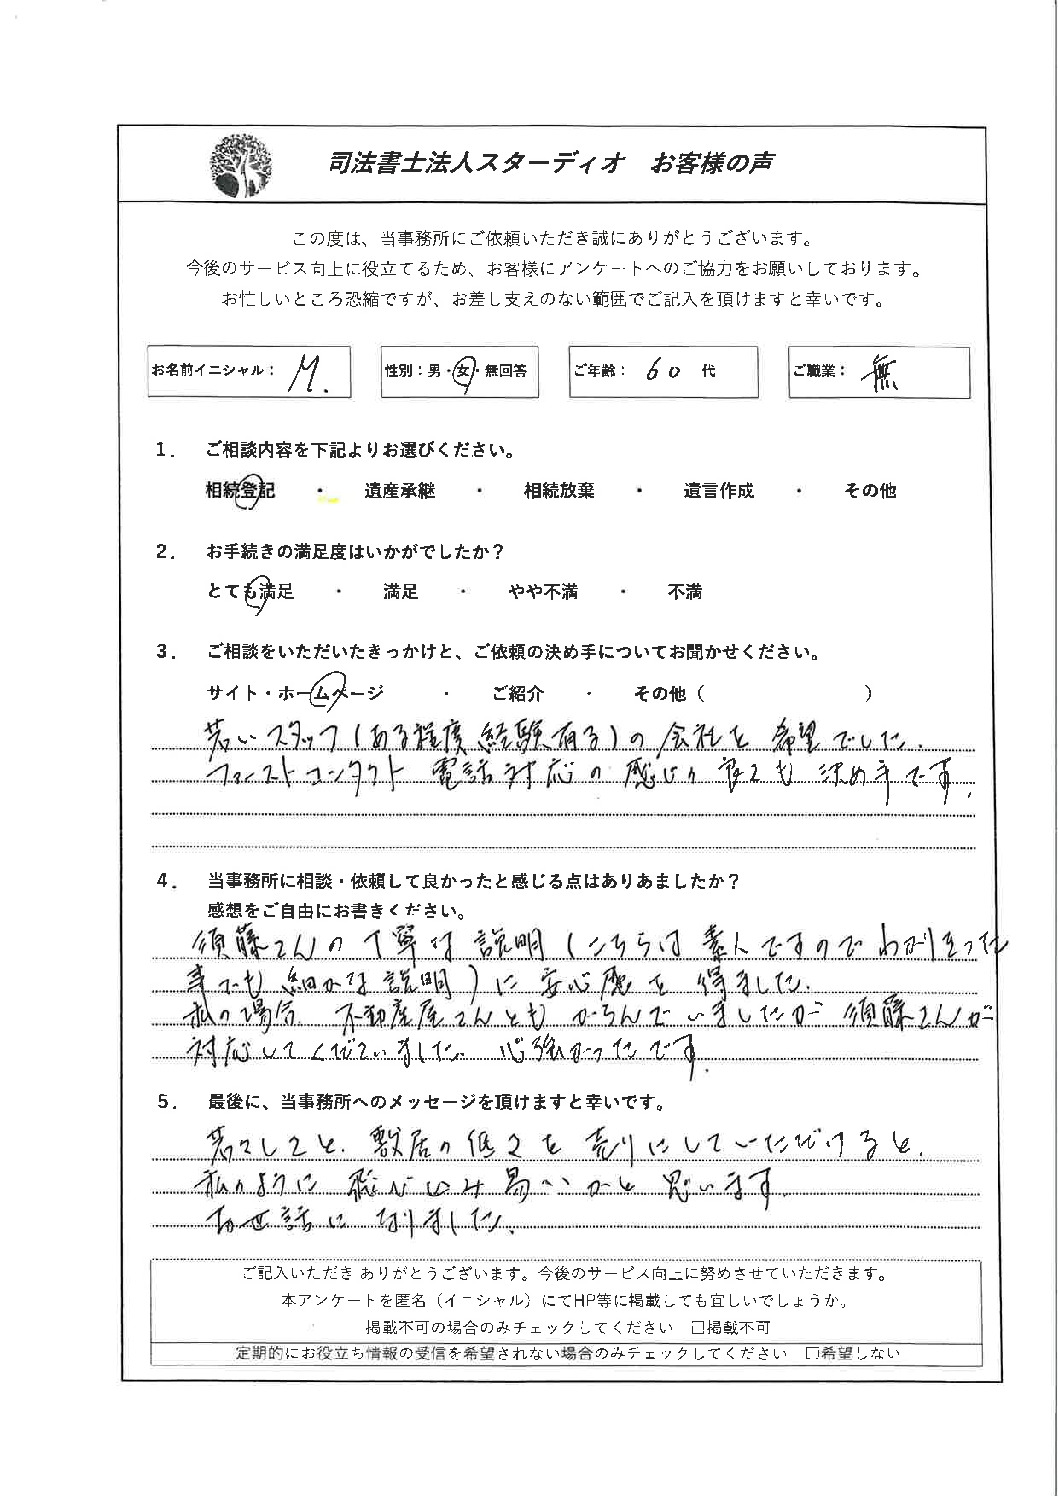 司法書士法人スターディオ お客様の声
この度は、当事務所にご依頼いただき誠にありがとうございます。
今後のサービス向上に役立てるため、お客様にアンケートへのご協力をお願いしております。
お忙しいところ恐縮ですが、お差し支えのない範囲でご記入を頂けますと幸いです。
お名前イニシャル： M. 性別：男・女・無回答 ご年齢： 60 代 ご職業： 無
1. ご相談内容を下記よりお選びください。
相続登記 ・ 遺産承継 ・ 相続放棄 ・ 遺言作成 ・ その他
2. お手続きの満足度はいかがでしたか？
とても満足 ・ 満足 ・ やや不満 ・ 不満
3. ご相談をいただいたきっかけと、ご依頼の決め手についてお聞かせください。
サイト・ホームページ ・ ご紹介 ・ その他（ ）
若いスタッフ(ある程度経験有る)の会社を希望でした.
ファーストコンタクト 電話対応の感じの良さも決め手です.
4. 当事務所に相談・依頼して良かったと感じる点はありあましたか？
感想をご自由にお書きください。
須藤さんの丁寧な説明(こちらは素人ですのでわかりきった
事でも細かな説明)に安心感を得ました.
私の場合 不動産屋さんともからんでいましたが 須藤さんが
対応してくださいました 心強かったです.
5. 最後に、当事務所へのメッセージを頂けますと幸いです。
若々しさと、敷居の低さを売りにしていただけると、
私のように飛び込み易いかと思います
お世話になりました.
ご記入いただき ありがとうございます。今後のサービス向上に努めさせていただきます。
本アンケートを匿名（イニシャル）にてHP等に掲載しても宜しいでしょうか。
掲載不可の場合のみチェックしてください □掲載不可
定期的にお役立ち情報の受信を希望されない場合のみチェックしてください □希望しない